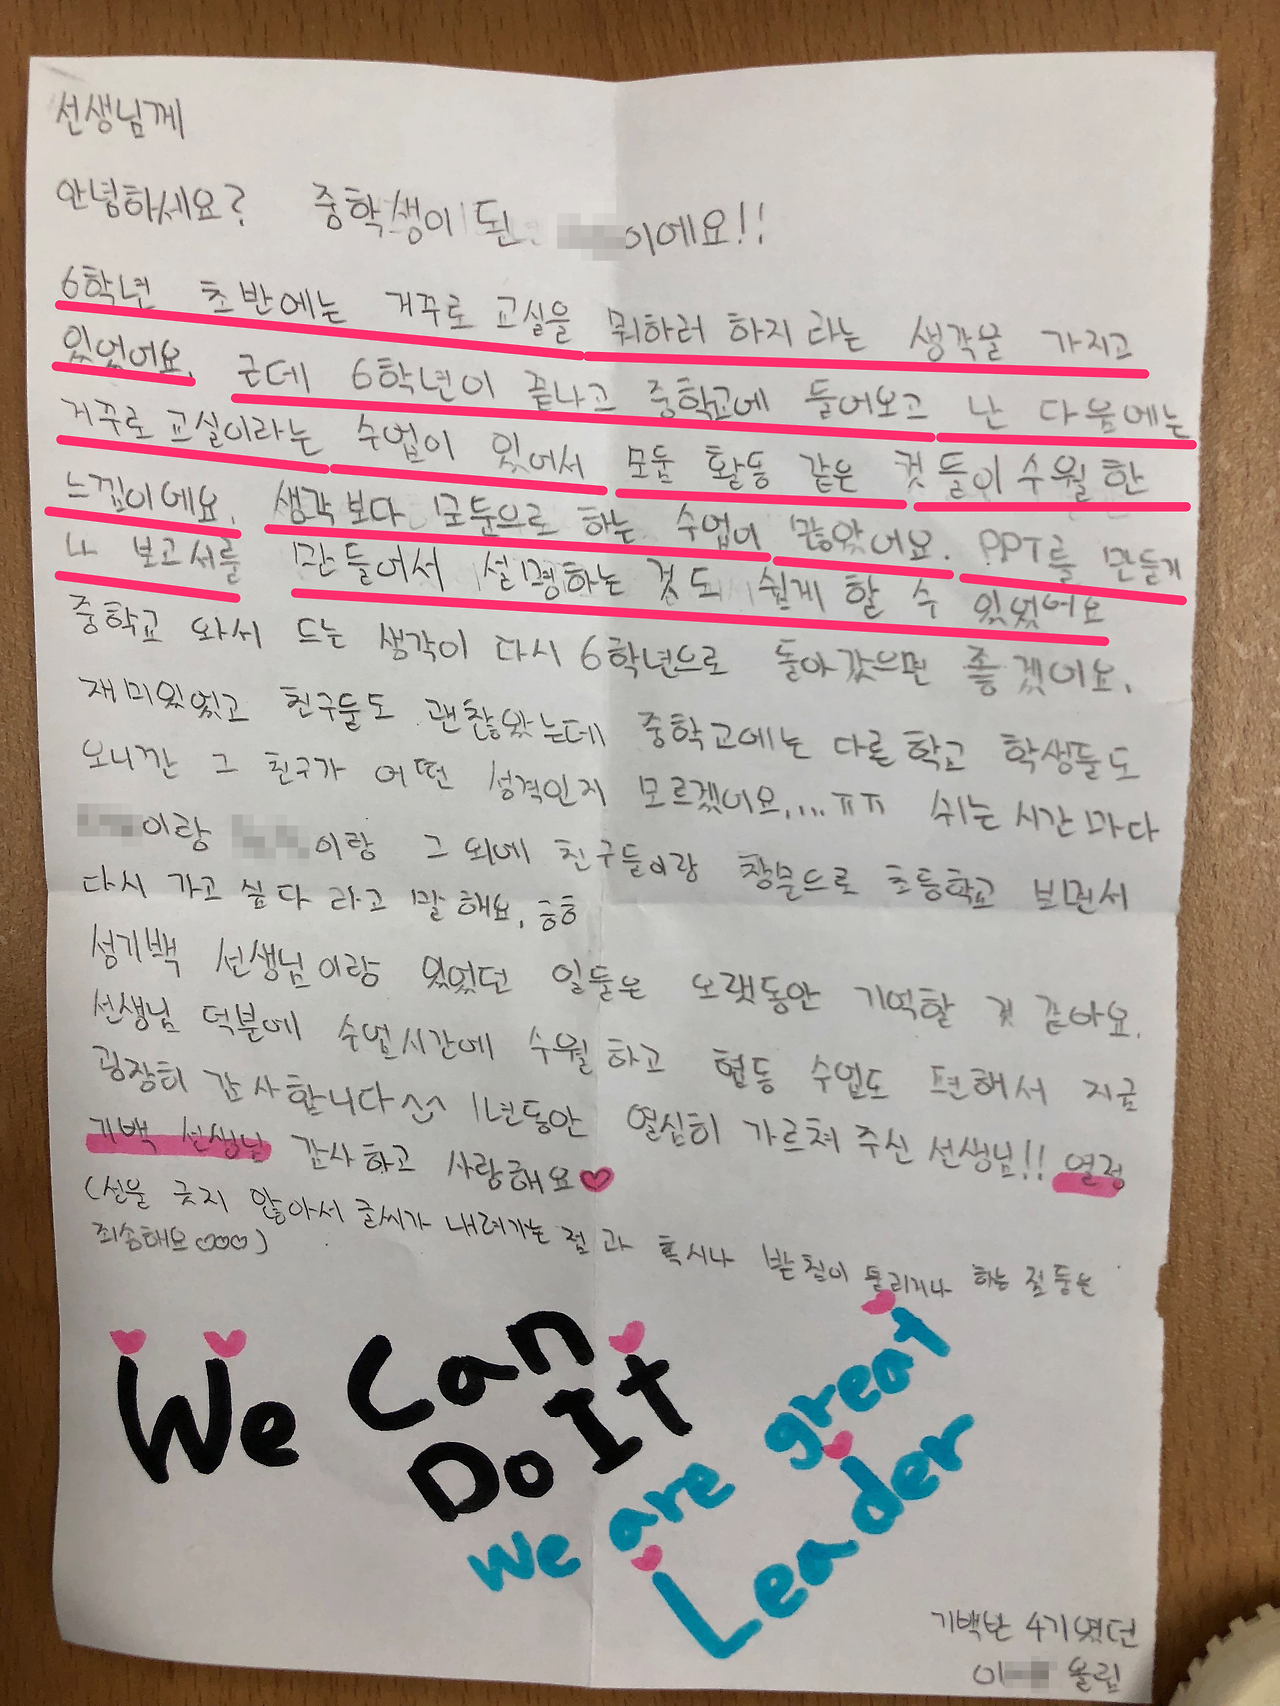 선생님께
안녕하세요? 중학생이 된 이에요!!
6학년 초반에는 거꾸로 교실을 뭐하러 하지 라는 생각을 가지고
있었어요. 근데 6학년이 끝나고 중학교에 들어오고 난 다음에는
거꾸로 교실이라는 수업이 있어서 모둠 활동 같은 것들이 수월한
느낌이에요. 생각보다 모둠으로 하는 수업이 많았어요. PPT를 만들거
나 보고서를 만들어서 설명하는 것도 쉽게 할 수 있었어요
중학교 와서 드는 생각이 다시 6학년으로 돌아갔으면 좋겠어요.
재미있었고 친구들도 괜찮았는데 중학교에는 다른 학교 학생들도
오니깐 그 친구가 어떤 성격인지 모르겠어요.... ㅠㅠ 쉬는 시간 마다
이랑 이랑 그 외에 친구들이랑 창문으로 초등학교 보면서
다시 가고 싶다 라고 말해요. ㅎㅎ
성기백 선생님이랑 있었던 일들은 오랫동안 기억할 것 같아요.
선생님 덕분에 수업시간에 수월하고 협동 수업도 편해서 지금
굉장히 감사합니다^^ 1년동안 열심히 가르쳐 주신 선생님!! 열정
기백 선생님 감사하고 사랑해요♡
(선을 긋지 않아서 글씨가 내려가는 점과 혹시나 받침이 틀리거나 하는 점들은
죄송해요♡♡♡)
We Can
Do It
We are great
Leader
기백반 4기였던
이 올림